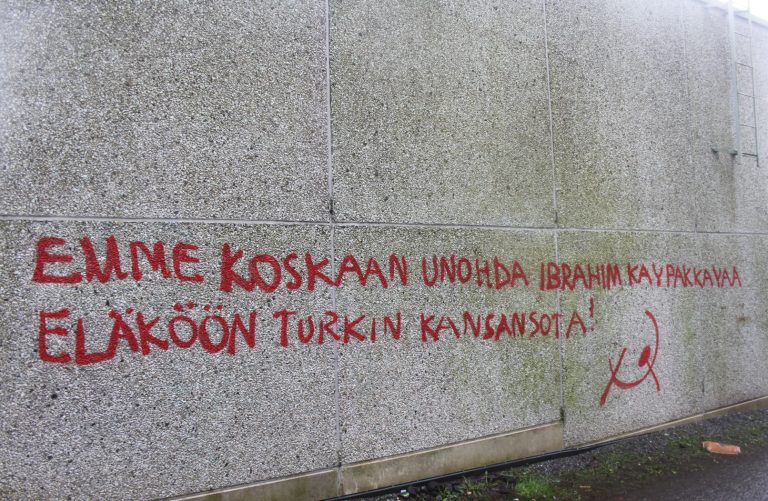 EMME KOSKAAN UNOHDA IBRAHIM KAYPAKKAYAA
ELÄKÖÖN TURKIN KANSANSOTA!